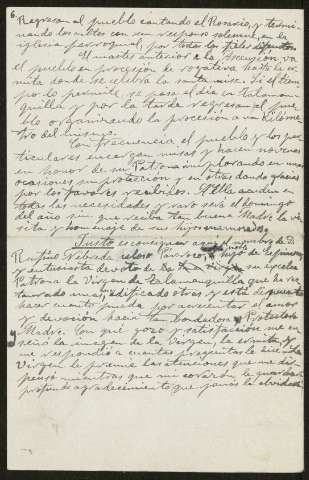 6
Regresan al pueblo cantando el Rosario, y termi-
nando los cultos con un responso solemne, en la
iglesia parroquial, por todos los fieles difuntos
El martes anterior a la Ascensión va
el pueblo en procesión de rogativa hasta la er-
mita donde se celebra la santa misa. Si el tiem-
po lo permite, se pasa el día en Salaman-
quilla y por la tarde regresan al pue-
blo organizando la procesión a un kilóme-
tro del mismo.
Con frecuencia, el pueblo y los par-
ticulares encargan misas y hacen novenas
en honor de su Patrona implorando en unas
ocasiones su protección y en otras dando gracias
por los favores recibidos. A Ella acuden en
todas las necesidades y raro será el domingo
del año sin que reciba tan buena Madre la vi-
sita y homenage de sus hijos
Justo es consignar aquí el nombre de D.
Rufino celoso Párroco, hijo de
y entusiasta devoto de su excelsa
Patrona la Virgen de Salamanquilla que ha res-
taurado unas, edificado otras y está dispuesto
hacer cuanto pueda por acrecentar el amor
y devoción hacia tan bondadosa y
Madre. Con qué gozo y satisfacción me en-
señó la imagen de la Virgen, la ermita, y
me respondió a cuantas preguntas le hice. La
Virgen le premie las atenciones que me dis-
pensó mientras que mi corazón le guardará
profundo agradecimiento que jamás la olvidará